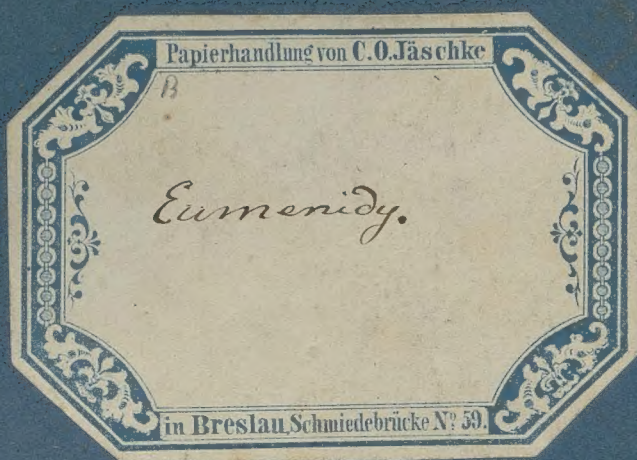 Papierhandlung von C.O.Jäschke
B
Eumenidy.
in Breslau, Schmiedebrücke Nº 59.